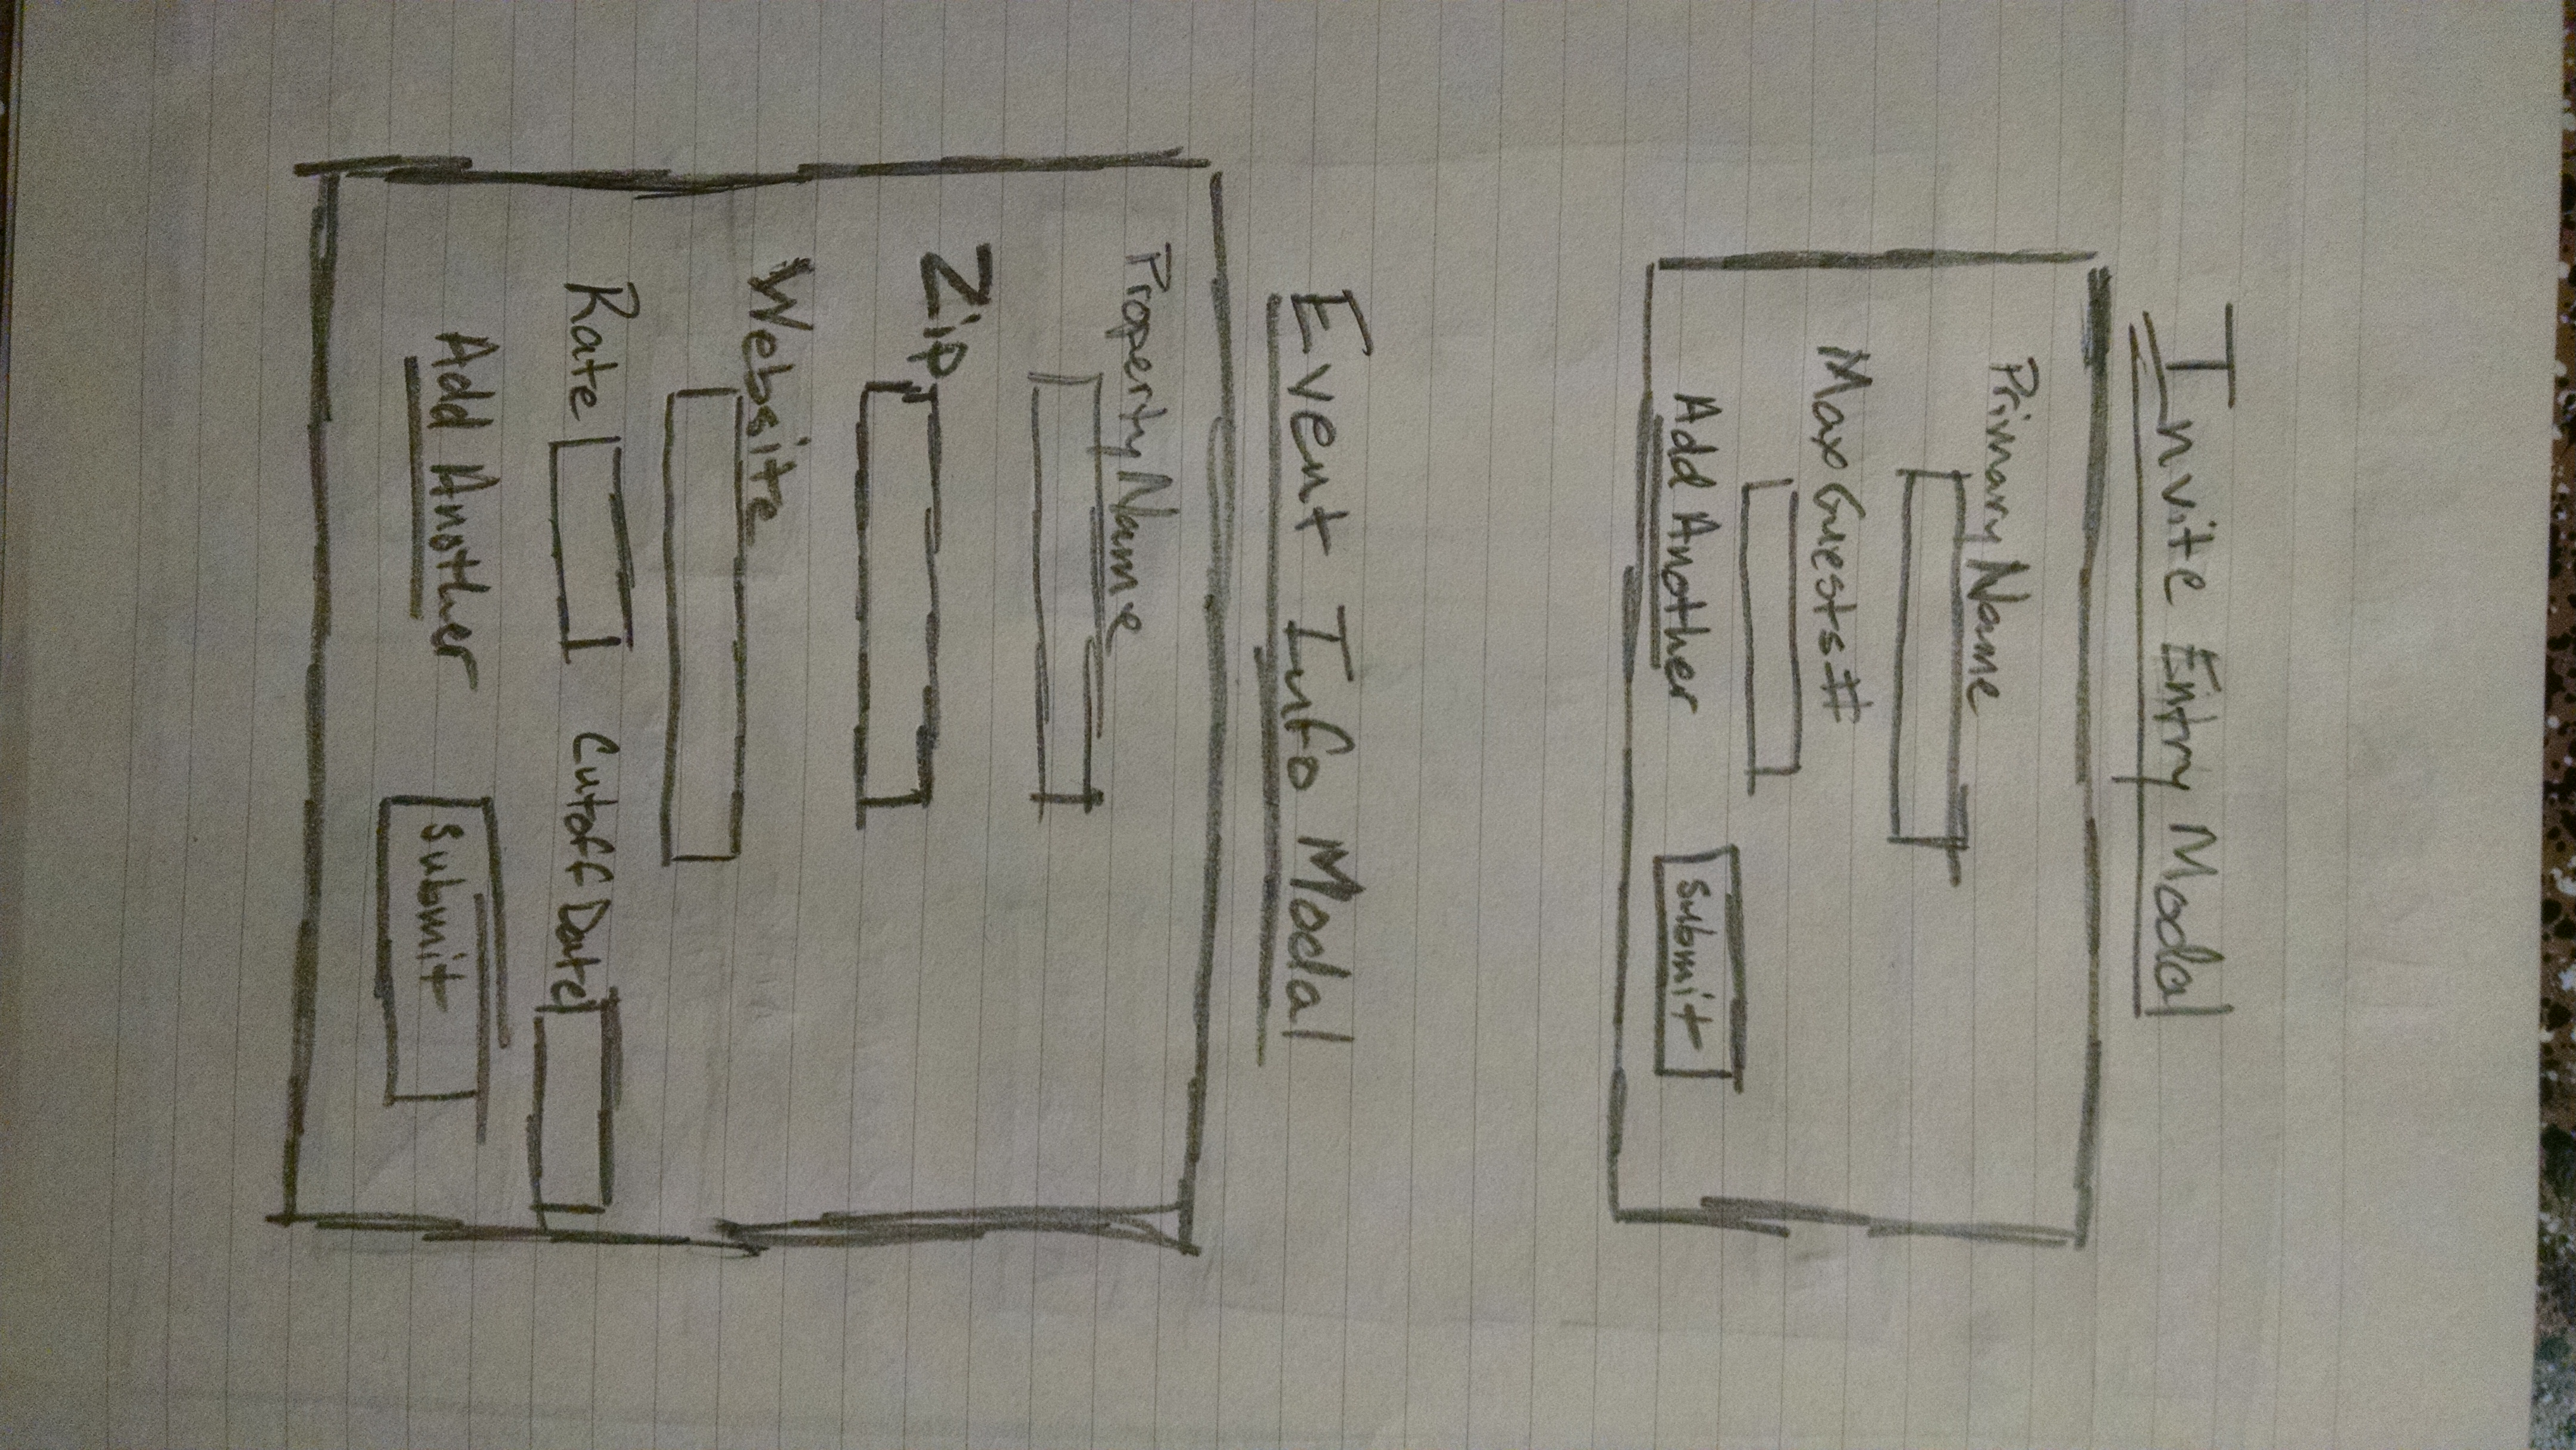 Invite Entry Modal
Primary Name
Max Guests #
Add Another Submit
Event Info Modal
Property Name
Zip
Website
Rate Cutoff Date
Add Another Submit